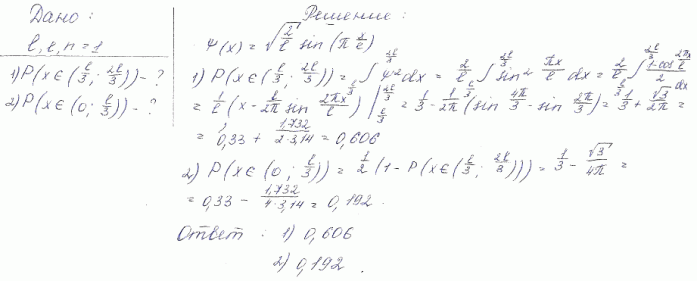 Дано:
l, e, n = 1
1) P(x ∈ (l/3; 2l/3)) - ?
2) P(x ∈ (0; l/3)) - ?
Решение:
Ψ(x) = √(2/l) sin(πx/l)
1) P(x ∈ (l/3; 2l/3)) = ∫_{l/3}^{2l/3} Ψ² dx = 2/l ∫_{l/3}^{2l/3} sin² πx/l dx = 2/l ∫_{l/3}^{2l/3} (1 - cos 2πx/l)/2 dx
= 1/l (x - l/2π sin 2πx/l) |_{l/3}^{2l/3} = 1/3 - 1/2π (sin 4π/3 - sin 2π/3) = 1/3 + √3/2π =
= 0,33 + 1,732/(2·3,14) = 0,606
2) P(x ∈ (0; l/3)) = 1/2 (1 - P(x ∈ (l/3; 2l/3))) = 1/3 - √3/4π =
= 0,33 - 1,732/(4·3,14) = 0,192.
Ответ: 1) 0,606
2) 0,192.